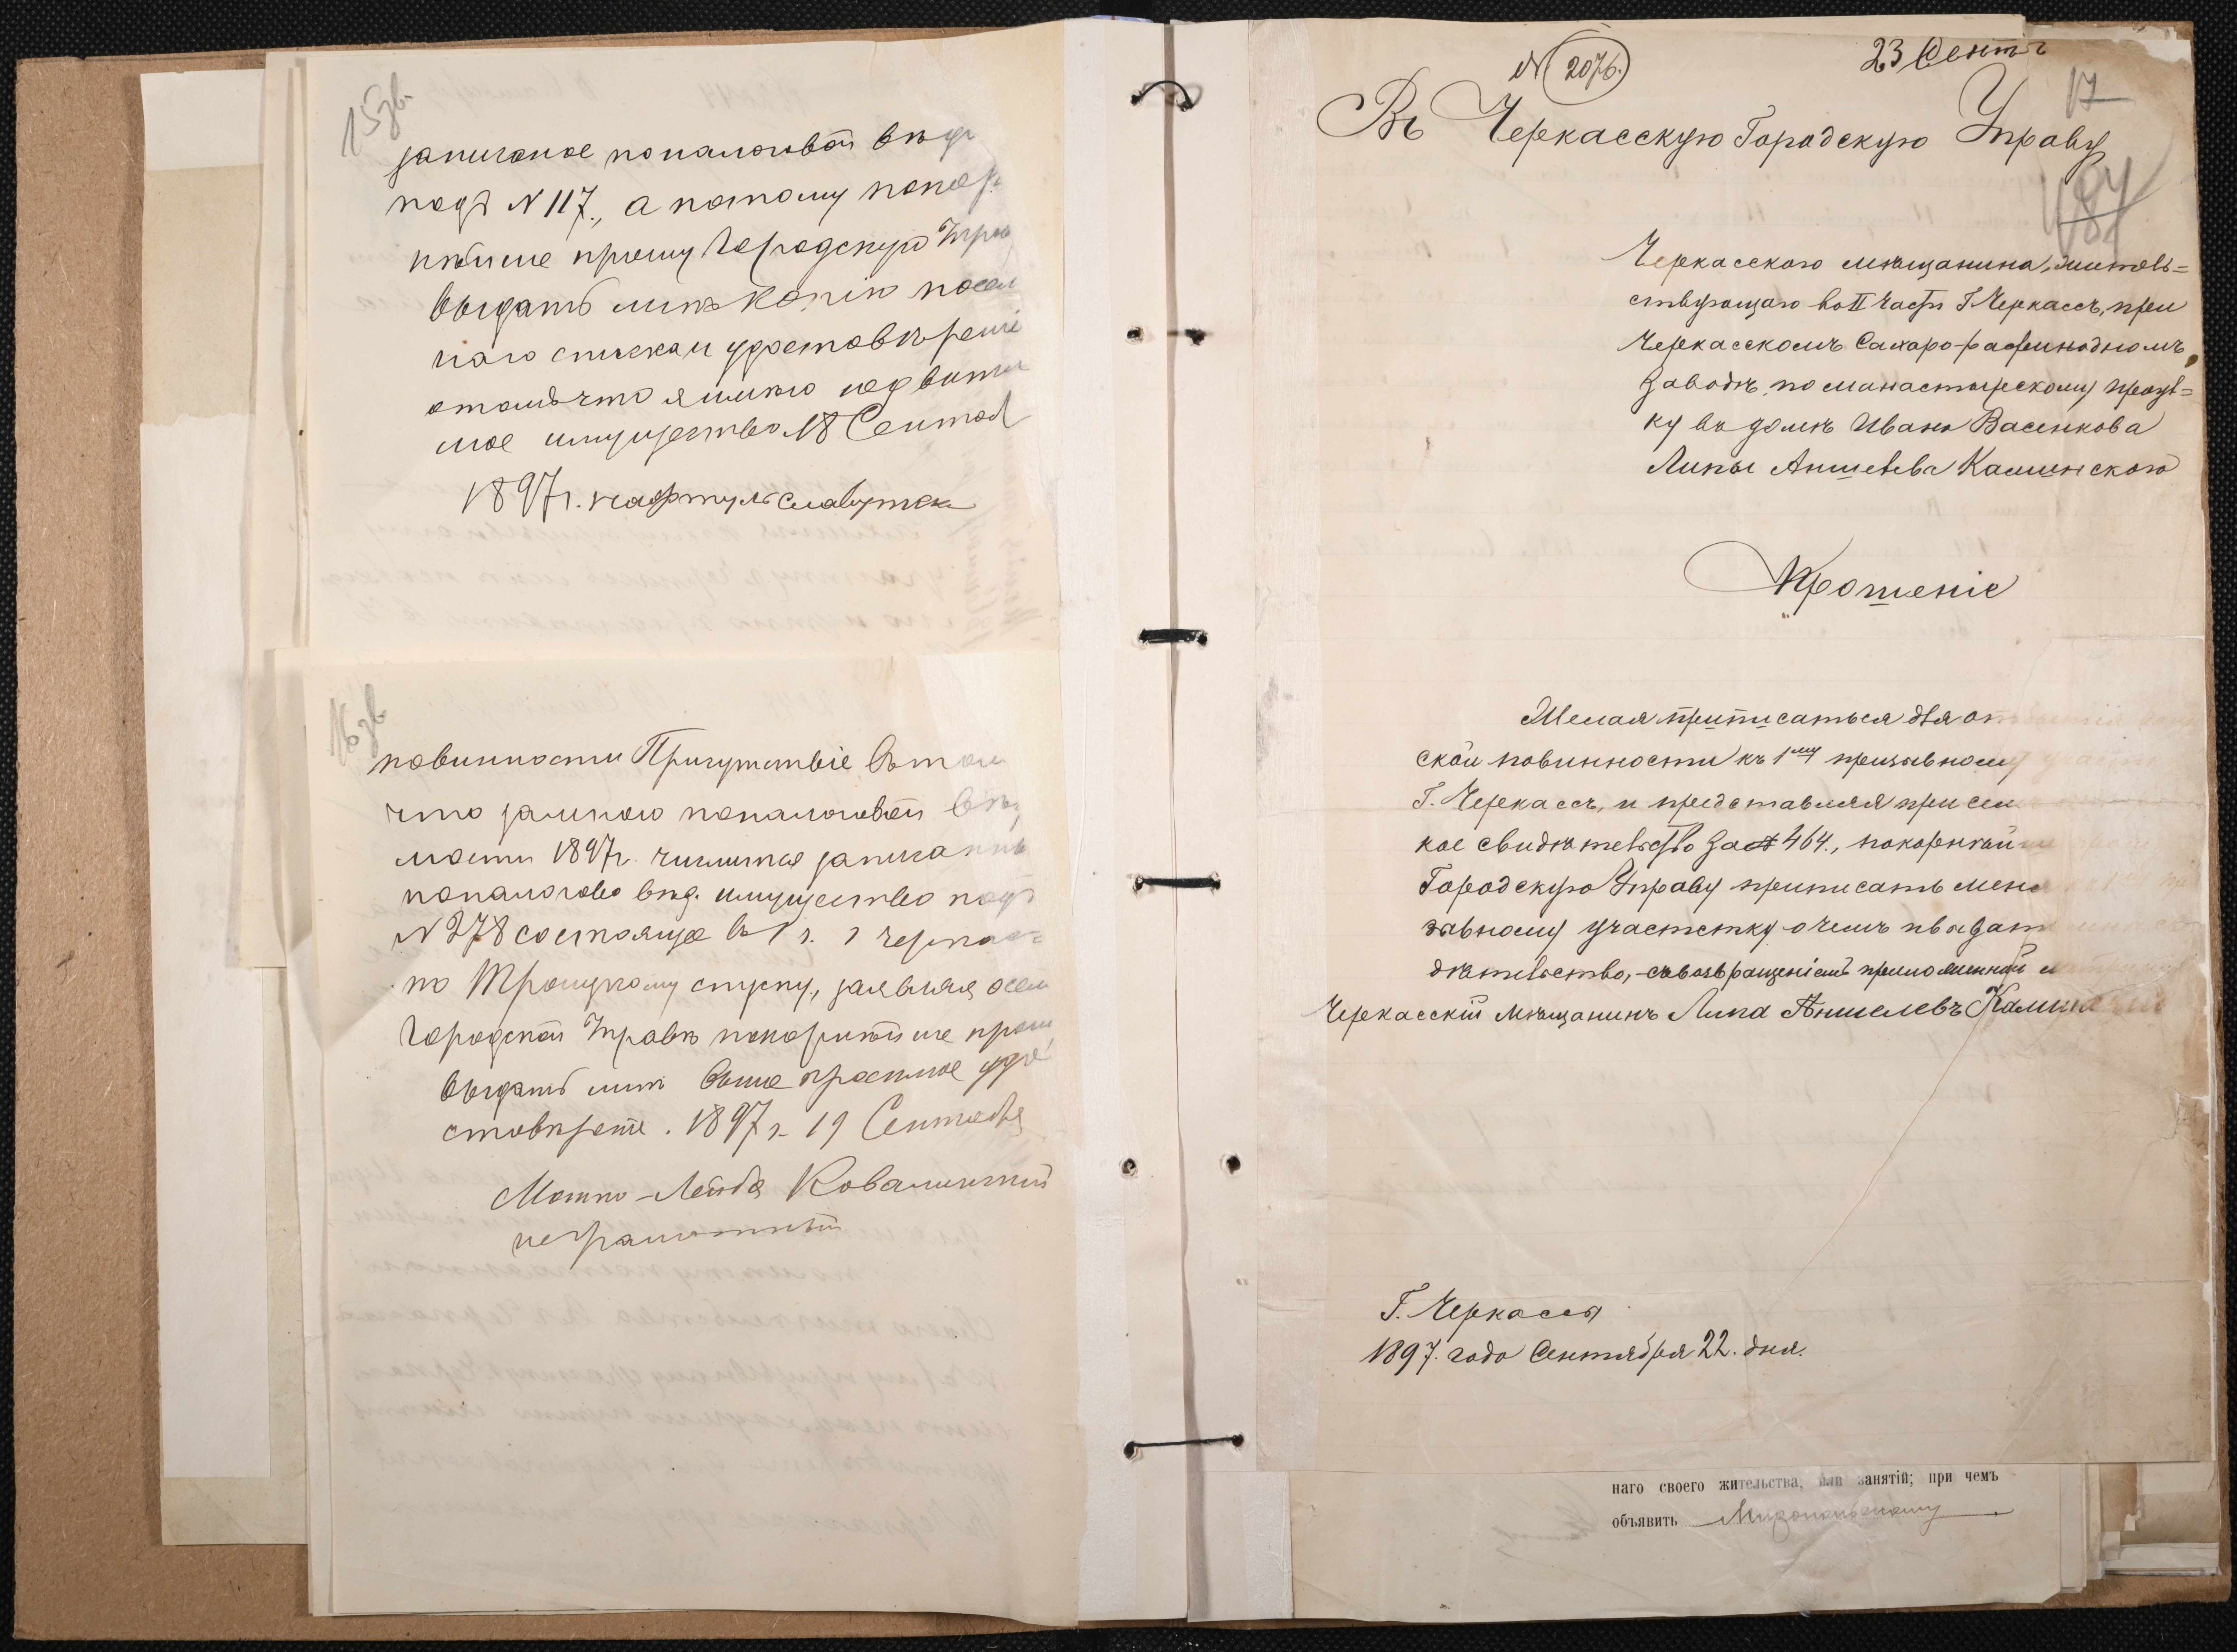 15зв.
записаное поналоговой вед
подъ N 117., а потому покор
нѣйше прошу Городскую Упра
выдать мнѣ копію посем
наго списка и удостовѣрені
о томъ что я имѣю недвижи
мое имущество. 18 Сентяб
1897 г. Нафтулъ Славутск
16зв.
повинности Присутствіе въ том
что за мною по налоговой вѣд
мости 1897 г. числится записанны
по налогово вѣд. имущество подъ
N 278 состояще въ г.
по Троицкому спуску, заявляя о сем
Городской Управѣ покорнѣйше прош
выдать мнѣ выше просимое удо
стовѣреніе. 1897 г. 19 Сентября
Мошко-Лейба Ковалинскій
неграмотный
N 2076.
23 Сент
17
Въ Черкасскую Городскую Управу
Черкасского мѣщанина, житель=
ствующаго во II части Г. Черкассъ, при
Черкасскомъ Сахаро-рафинадномъ
Заводѣ, по манастырскому проул=
ку въ домѣ Ивана Васенкова
Липы Аншелева Каминского
Прошеніе
Желая приписаться для от
ской повинности къ 1му призывному
Г. Черкассъ, и представляя при сем
кое свидѣтельство за № 464., покорнѣйше
Городскую Управу приписать меня
зывному участстку о чемъ и выдать
дѣтельство, - съ возвращеніемъ приложенной
Черкасскій Мѣщанинъ Липа Аншелевъ Камин
Г. Черкассы
1897. года Сентября 22. дня.
наго своего жительства, или занятій; при чемъ
объявить